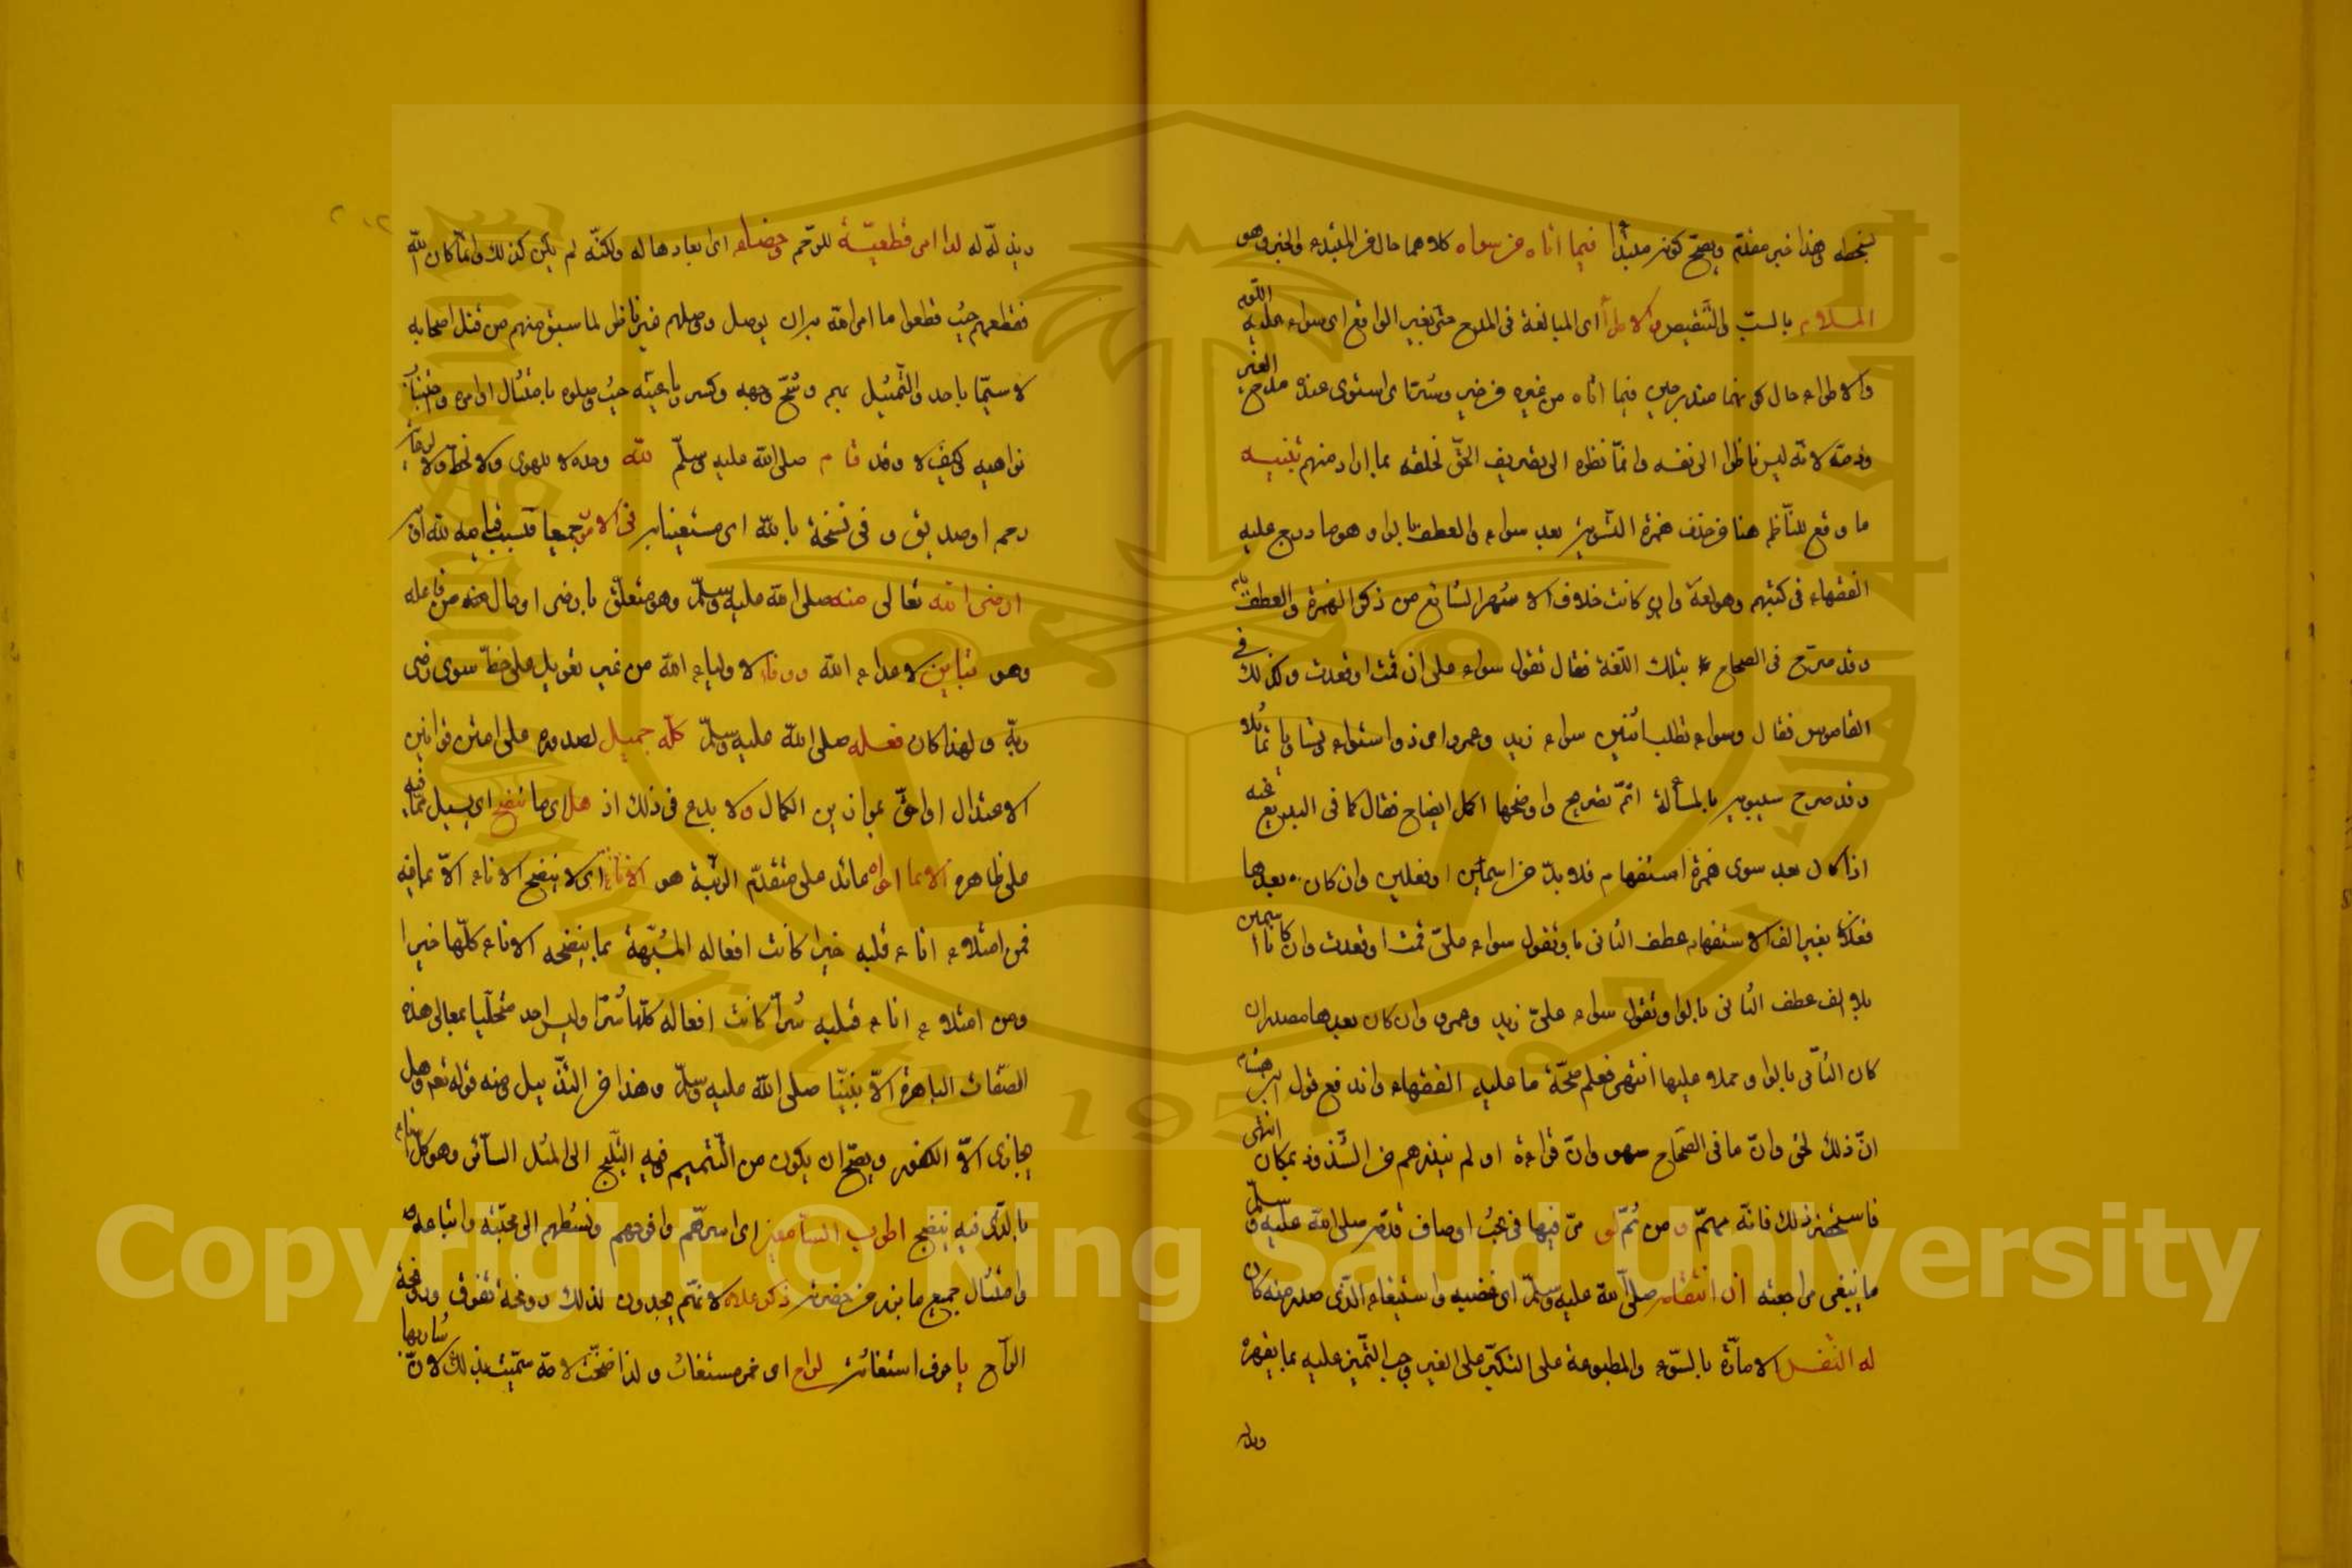 وهذا خبر مقدم ويصح كونه مبتدأ فيما أتاه من سواه كلاهما حال من المبتدء والخبر وهو
الملام بالسب والتنقيص والاطراء أى المبالغة فى المدح حتى بغير الواقع اى سواء عليه اللوم
والاطراء حال كونهما مندرجين فيما أتاه من غيره من خير وشر اى استوى عنده مدح الغير
وذمه لانه ليس ناظرا الى نفسه وانما نظره الى تصريف الحق لخلقه بما اراد منهم تنبيه
ما وقع للناظم هنا من حذف همزة التسوية بعد سواء والعطف باو هو ما درج عليه
الفقهاء فى كتبهم وهو لغة وان كانت خلاف الاشهر الشائع من ذكر الهمزة والعطف بام
وقد صرح فى الصحاح بتلك اللغة فقال تقول سواء على ان قمت او قعدت وكذلك فى
القاموس فقال وسواء تطلب اثنين سواء زيد وعمرو اى ذوا استواء تساويا تماثلا
وقد صرح سيبويه بالمسألة اتم تصريح واوضحها اكمل ايضاح فقال كما فى البديع عنه
اذا كان بعد سوى همزة استفهام فلا بد من اسمين او فعلين وان كان بعدها
فعلان بغير الف الاستفهام عطف الثانى باو تقول سواء على قمت او قعدت وان كانا اسمين
بلا الف عطف الثانى بالواو تقول سواء على زيد وعمرو وان كان بعدها مصدران
كان الثانى بالواو وحملا عليها انتهى فعلم صحة ما عليه الفقهاء واندفع قول ابن هشام
ان ذلك لحن وان ما فى الصحاح سهو وان قراءة او لم تنذرهم من الشذوذ بمكان انتهى
فاستحضر ذلك فانه مهم ومن ثم لو مر فيها فى بحث اوصاف قدر صلى الله عليه وسلم
ما ينبغى مراجعته ان انتقامه صلى الله عليه وسلم اى غضبه واستيفاءه الذى صدر منه كان
له النفس الامارة بالسوء والمطبوعة على التكبر على الغير وحب التميز عليه بما يقهره
ويذ
لله له لدامى قطعية للرحم وجفاء اى ابعادها له ولكنه لم يكن كذلك وانما كان لله
فقطعهم حيث قطعوا ما امر الله به ان يوصل ووصلهم غير ناظر لما سبق منهم من قتل اصحابه
لا سيما باحد والتمثيل بهم وشج وجهه وكسر رباعيته حيث وصلوه بامتثال اوامره واجتناب
نواهيه كيف لا وقد قام صلى الله عليه وسلم لله وحده لا لهوى ولا لحظ ولا
رحم او صديق وفى نسخة بالله اى مستعينا به فى الامور جميعا فبسبب قيامه لله
ارضى الله تعالى منه صلى الله عليه وسلم وهو متعلق بارضى او حال منه من فاعله
وهو تباين لاعداء الله ووفاء لاولياء الله من غير تعويل على حظ سوى رضى
ربه ولهذا كان فعله صلى الله عليه وسلم كله جميل لصدوره على امتن قوانين
الاعتدال اوا حق بموازين الكمال ولا بدع فى ذلك اذ هل اى ما ينضح اى يسيل مما فيه
على ظاهره الا بما حواه عائد على متقدم الرتبة هو الاناء اى لا ينضح الاناء الا بما فيه
فمن امتلاء اناء قلبه خيرا كانت افعاله المشبهة بما ينضحه الاناء كلها خيرا
ومن امتلاء اناء قلبه شرا كانت افعاله كلها شرا وليس احد متحليا بمعالى هذه
الصفات الباهرة الا نبينا صلى الله عليه وسلم وهذا من التذييل ومنه قوله تعالى وهل
يجازى الا الكفور ويصح ان يكون من التتميم وفيه التلميح الى المثل السائر وهو كل اناء
بالذى فيه ينضح اطرب السامعين اى اسرهم وافرحهم ونشطهم الى محبته واتباعه
وامتثال جميع ما برز من حضرته ذكر علاه لانهم يجدون لذلك روحة تفوق ورايحة
الراح يا حرف استغاثة لراح اى خمر مستغاث ولذا فتحت لامه سميت بذلك لان شاربها